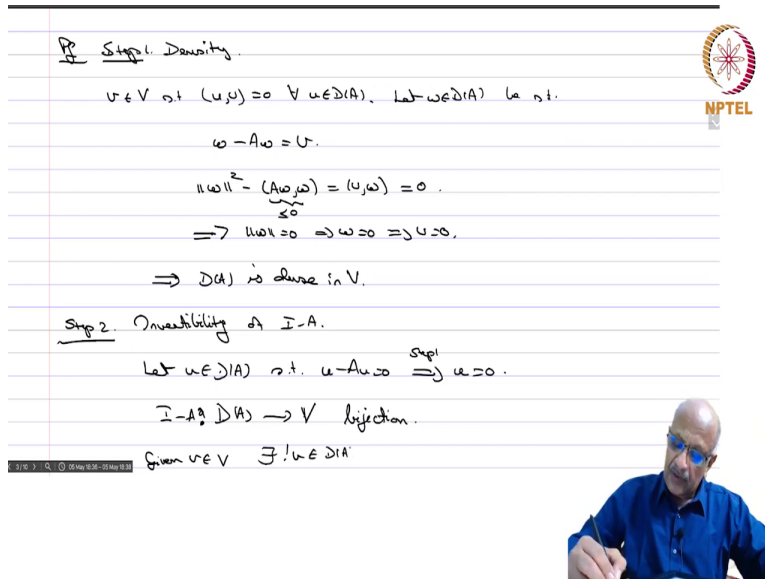 Pf Step 1. Density.
v ∈ V s.t (u,v) = 0 ∀ u ∈ D(A). Let w ∈ D(A) be s.t.
NPTEL
w - Aw = v.
||w||² - (Aw,w) = (v,w) = 0.
≤0
⟹ ||w|| = 0 ⟹ w = 0 ⟹ v = 0.
⟹ D(A) is dense in V.
Step 2. Invertibility of I-A.
Let u ∈ D(A) s.t. u - Au = 0 ⟹ u = 0.
Step 1
I-A : D(A) → V bijection.
Given v ∈ V ∃! u ∈ D(A
3/10 05 May 18:36 - 05 May 18:38